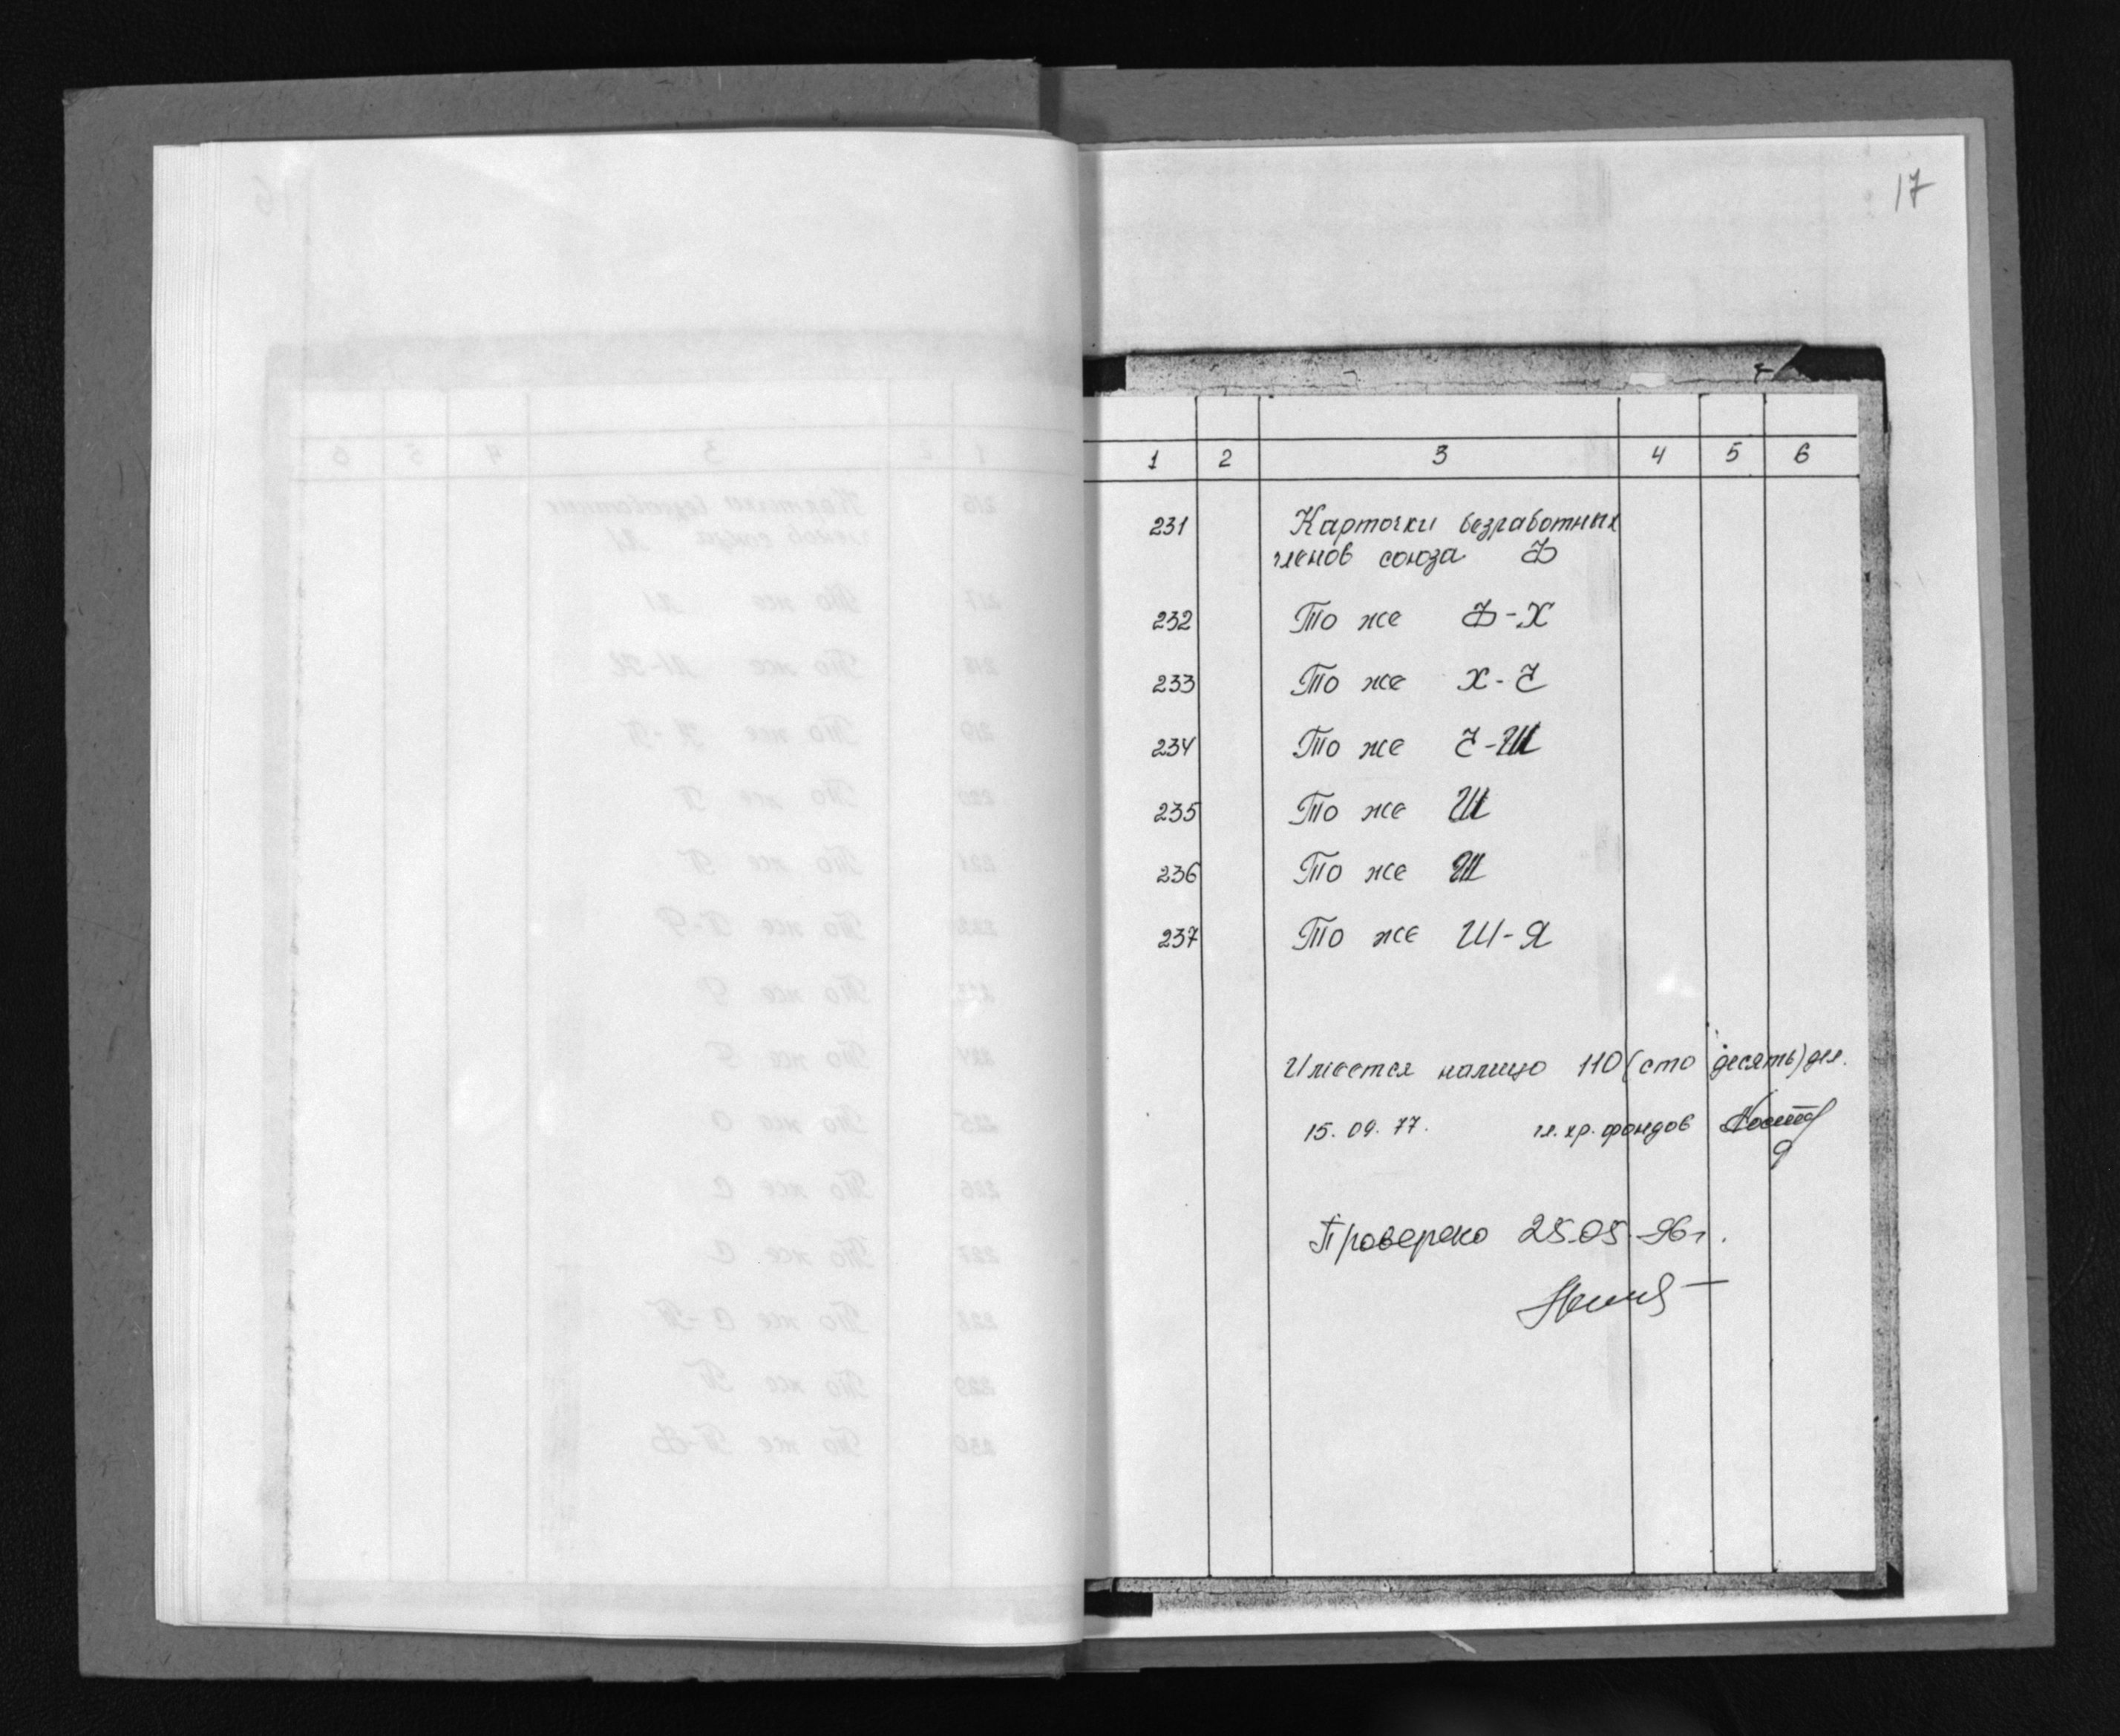 17
1 2 3 4 5 6
231 Карточки безработных
членов союза Ф
232 То же Ф-Х
233 То же Х-Ч
234 То же Ч-Ш
235 То же Ш
236 То же Ш
237 То же Ш-Я
Имеется налицо 110 (сто десять) дел.
15.09.77. гл. хр. фондов
Проверено 28.05.96г.